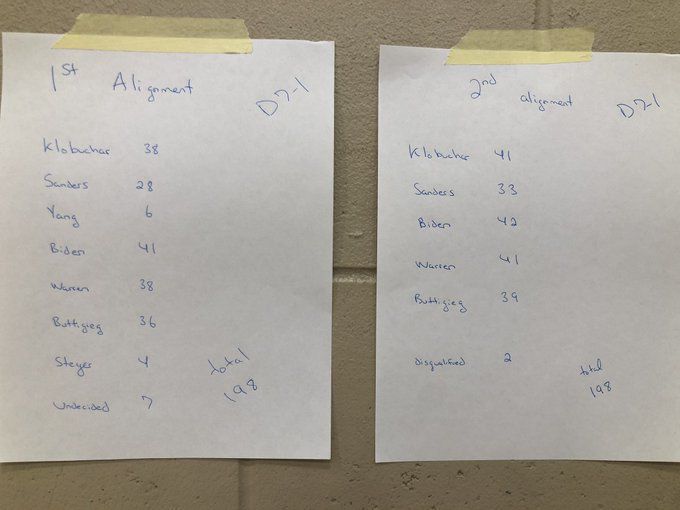 1st Alignment
D7-1
Klobuchar 38
Sanders 28
Yang 6
Biden 41
Warren 38
Buttigieg 36
Steyer 4
Undecided 7
total
198
2nd alignment
D7-1
Klobuchar 41
Sanders 33
Biden 42
Warren 41
Buttigieg 39
disqualified 2
total
198